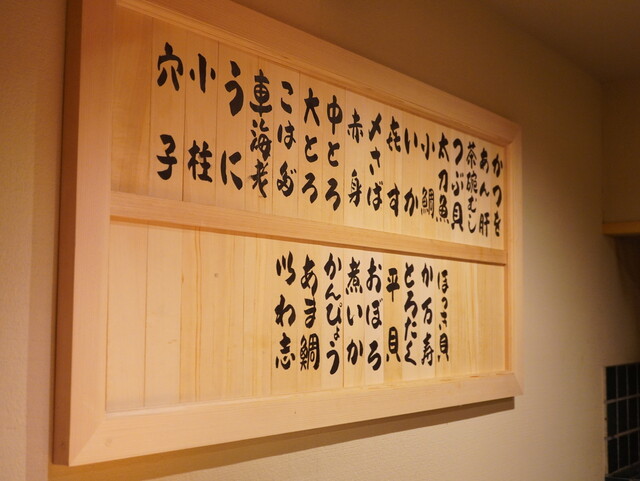 かつを
あん肝
茶碗むし
つぶ貝
太刀魚
小鯛
いか
きす
〆さば
赤身
中とろ
大とろ
こはだ
車海老
うに
小柱
穴子
ほっき貝
かん寿
とろたく
平貝
おぼろ
煮いか
かんぴょう
あま鯛
いわ志